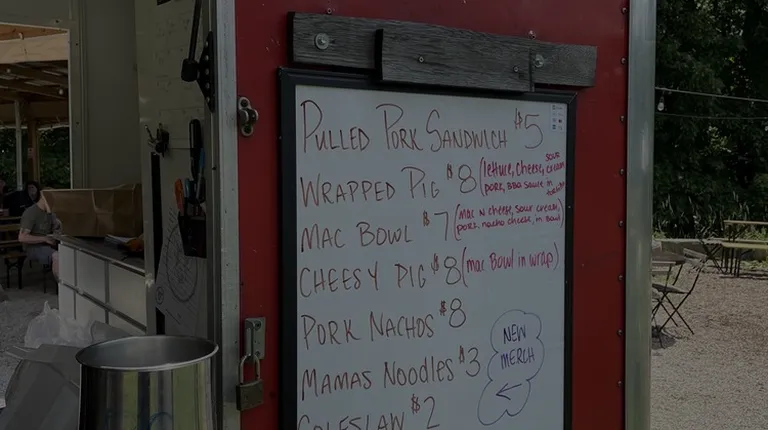 PULLED PORK SANDWICH $5
WRAPPED PIG $8 (lettuce, cheese, sour cream,
pork, BBQ sauce in tortilla)
MAC BOWL $7 (mac n cheese, sour cream,
pork, nacho cheese, in bowl)
CHEESY PIG $8 (mac Bowl in wrap)
PORK NACHOS $8
MAMAS NOODLES $3
COLESLAW $2
NEW
MERCH